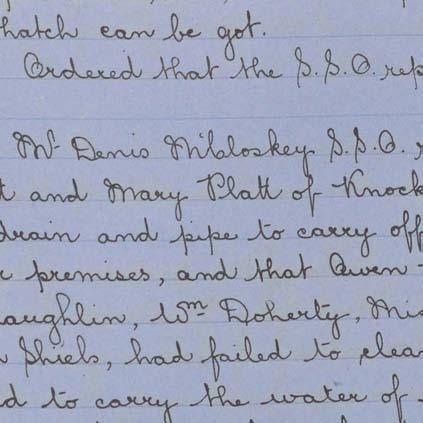 hatch can be got.
Ordered that the S.S.O. rep
Mr Denis McCloskey S.S.O. r
t and Mary Platt of Knock
drain and pipe to carry off
r premises, and that Owen
aughlin, Wm Doherty, Mis
n Shiels, had failed to clea
d to carry the water of